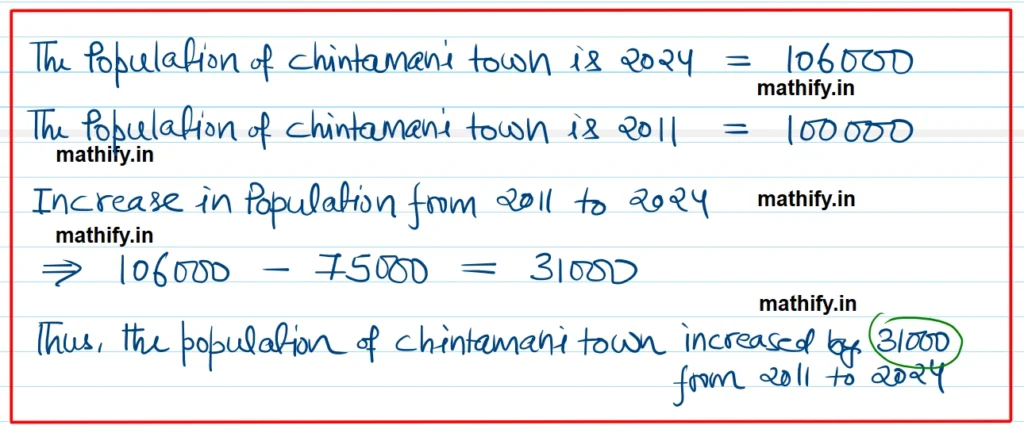 The Population of chintamani town is 2024 = 106000
mathify.in
The Population of chintamani town is 2011 = 100000
mathify.in
Increase in Population from 2011 to 2024 mathify.in
mathify.in
⇒ 106000 - 75000 = 31000
mathify.in
Thus, the population of chintamani town increased by 31000
from 2011 to 2024